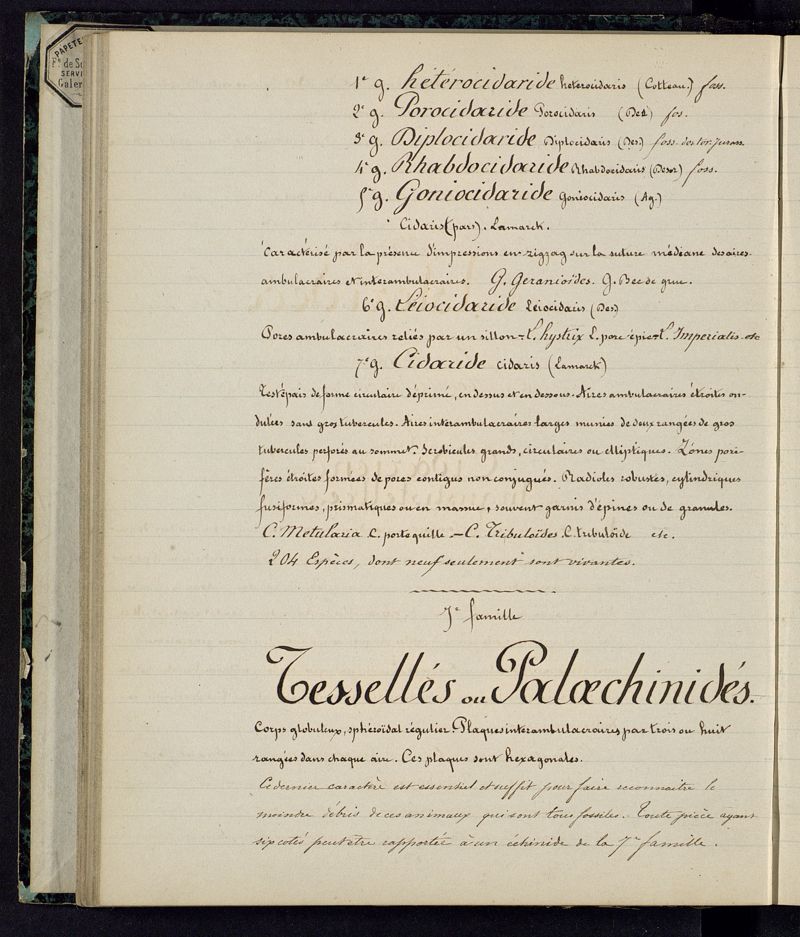 PAPETE
Fs de Su
SERVI
Galer
1e g. hétérocidaride heterocidaris (Cotteau) foss.
2e g. Porocidaride Porocidaris (Des) fos.
3e g. Diplocidaride Diplocidaris (Des) foss. des ter. jurass.
4e g. Rhabdocidaride Rhabdocidaris (Desor) foss.
5e g. Goniocidaride Goniocidaris (Ag.)
Cidaris (pars). Lamarck.
Caractérisé par la présence d'impressions en zigzag sur la suture médiane des aires
ambulacraires et interambulacraires. G. Geranioïdes. G. Bec de grue.
6e g. Leiocidaride Leiocidaris (Des)
Pores ambulacraires reliés par un sillon - L. hystrix L. porc épic - L. Imperialis - etc
7e g. Cidaride cidaris (Lamarck)
Test épais de forme circulaire déprimé, en dessus et en dessous. Aires ambulacraires étroites on-
dulées sans gros tubercules. Aires interambulacraires larges munies de deux rangées de gros
tubercules perforés au sommet. Scrobicules grands, circulaires ou elliptiques. Zônes pori-
fères étroites formées de pores contigus non conjugués. Radioles robustes, cylindriques
fusiformes, prismatiques ou en massue, souvent garnis d'épines ou de granules.
C. Metularia C. porte quille — C. Tribuloïdes. C. tribuloïde etc.
204 Espèces, dont neuf seulement sont vivantes.
7e famille
Tessellés ou Palæchinidés.
Corps globuleux, sphéroïdal régulier. Plaques interambulacraires par trois ou huit
rangées dans chaque aire. Ces plaques sont hexagonales.
Ce dernier caractère est essentiel et suffit pour faire reconnaître le
moindre débris de ces animaux qui sont tous fossiles. Toute pièce ayant
six cotés peut être rapportée à un échinide de la 7e famille.